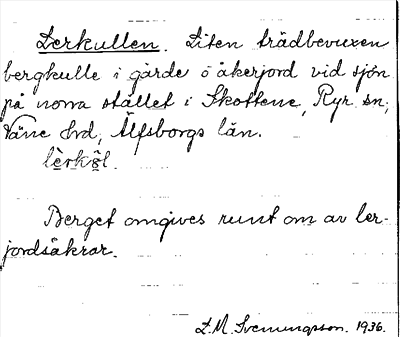 Lerkullen. Liten trädbevuxen
bergkulle i gärde o åkerjord vid sjön
på norra stället i Skottene, Ryr sn,
Väne hrd, Älfsborgs län.
Berget omgives runt om av ler-
jordsåkrar.
L.M. Svenungsson. 1936.